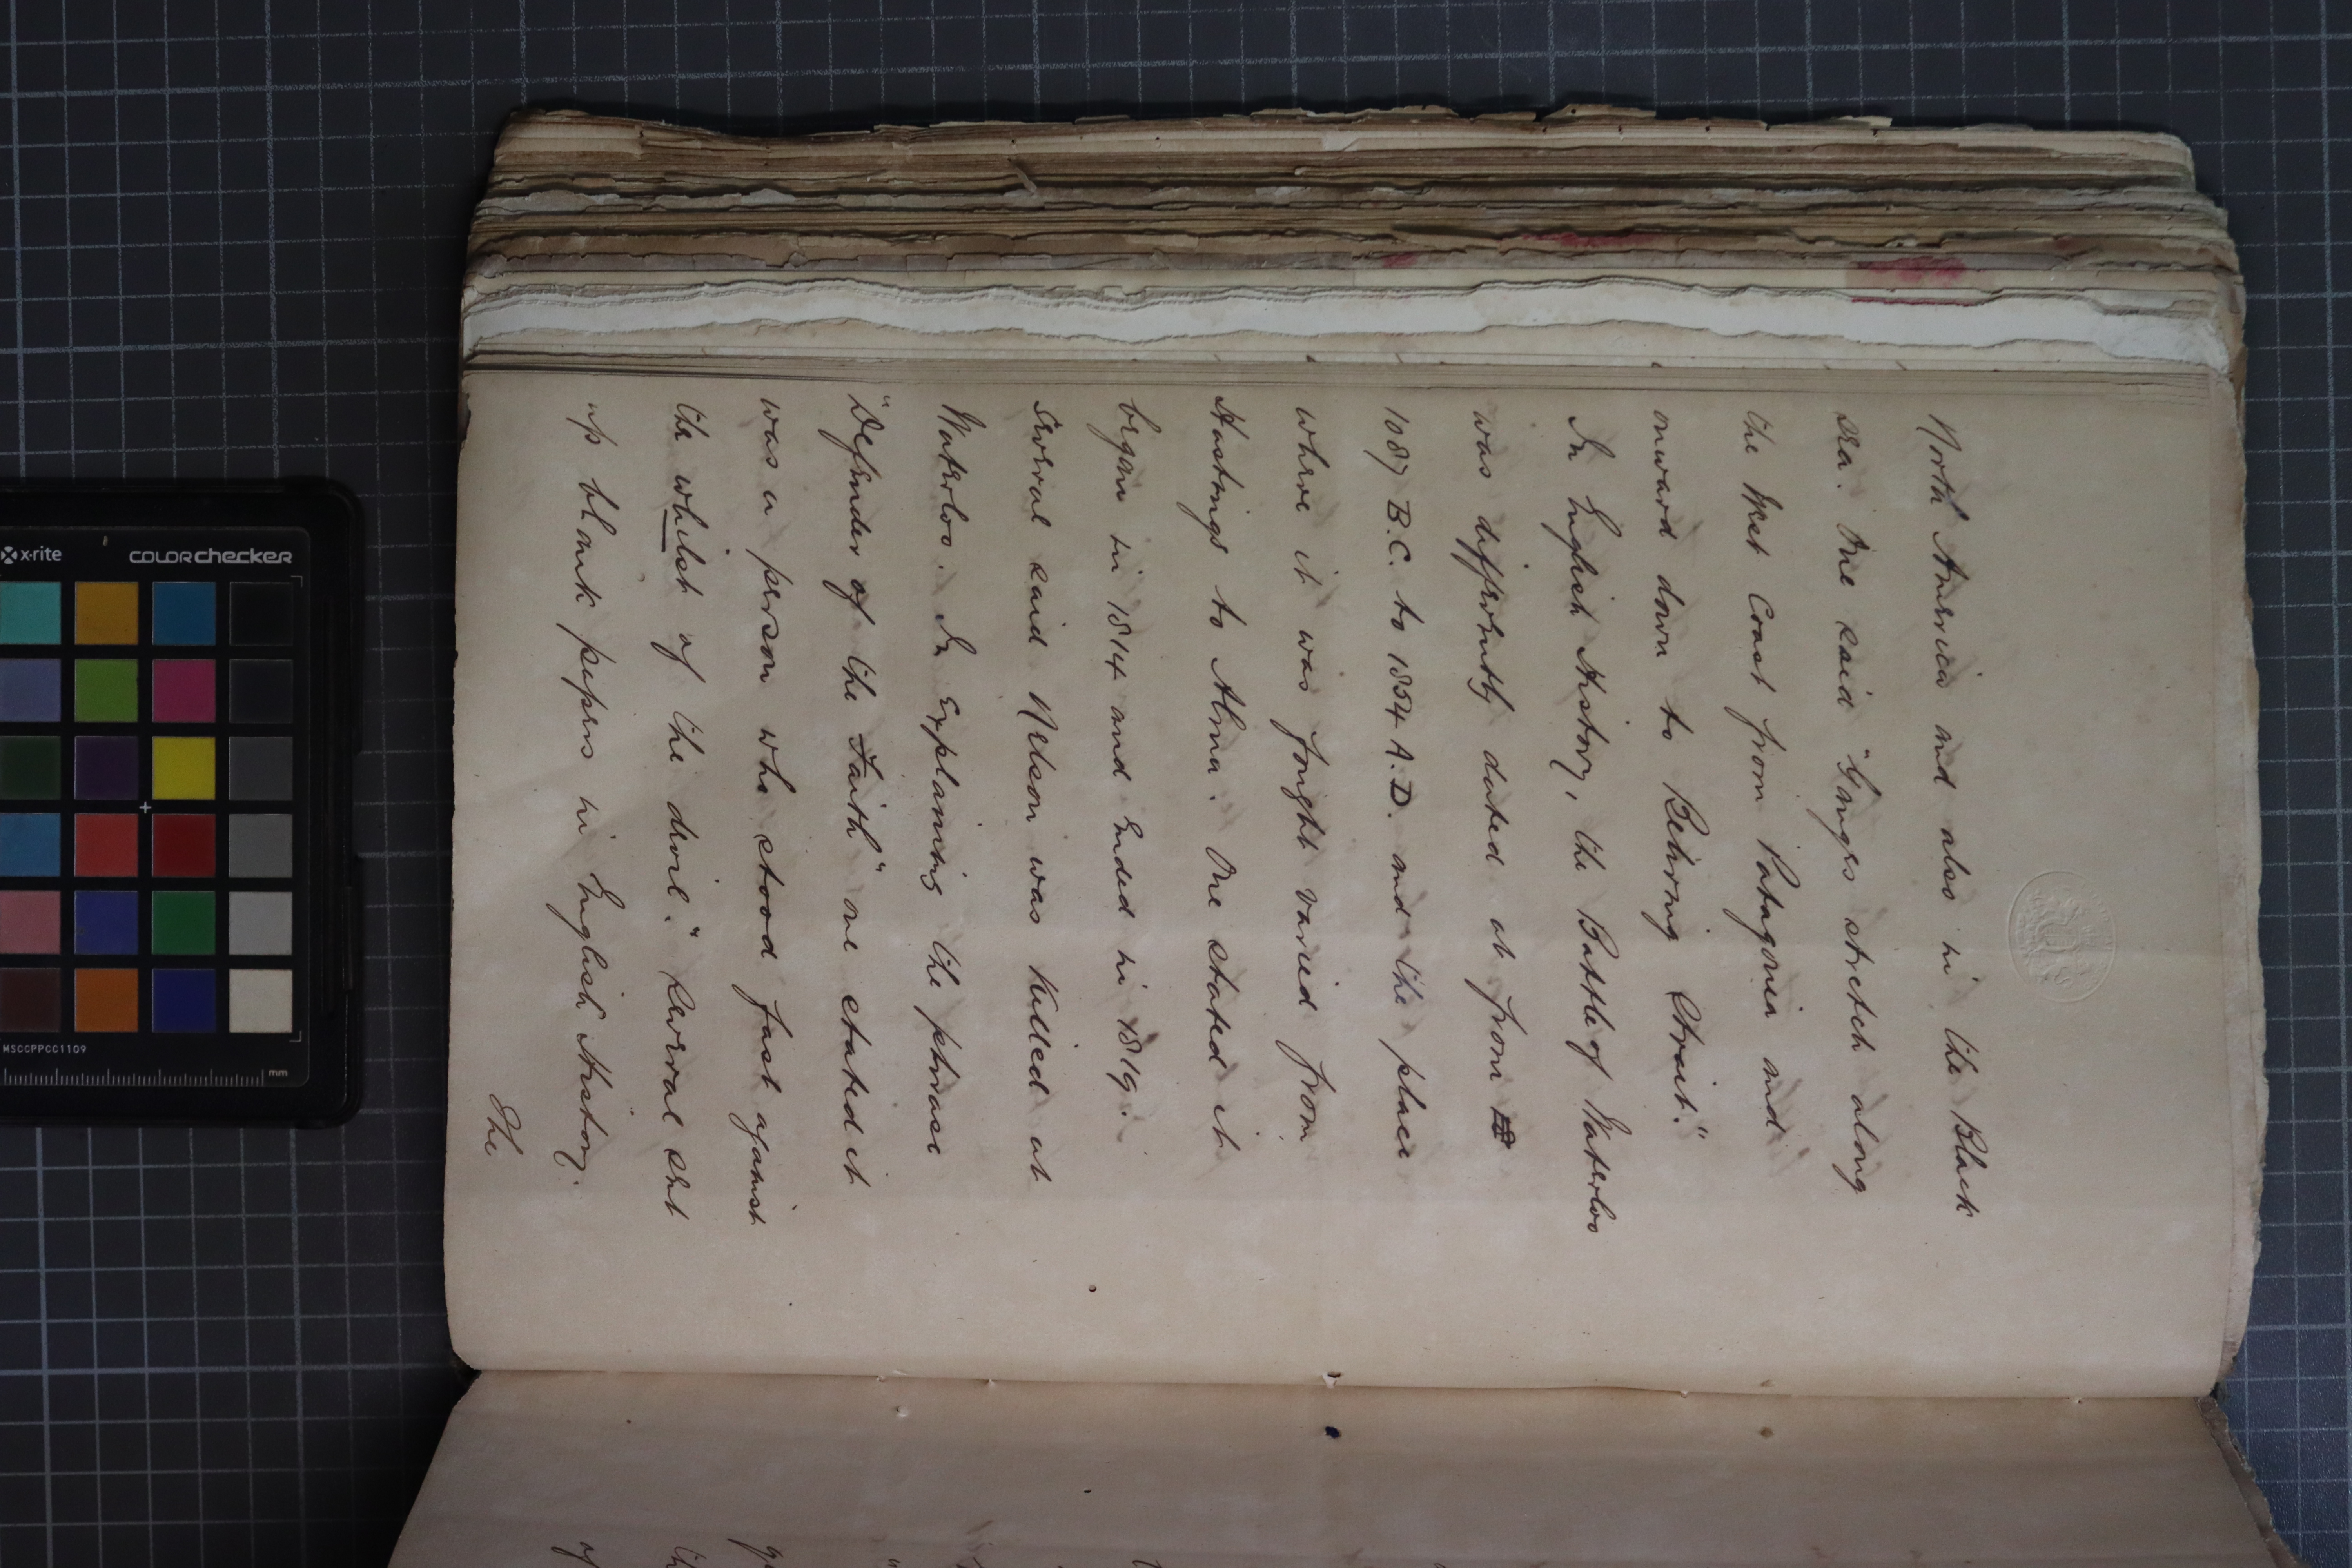 North America and also in the Black
sea. One said "Ganges stretch along
the West Coast from Patagonia and
onward down to Behring Strait."
In English History, the Battle of Waterloo
was differently dated at from
1087 B.C. to 1854 A.D. and the place
where it was fought varied from
Hastings to Alma. One stated it
began in 1814 and Ended in 1819.
Several said Nelson was killed at
Waterloo. In Explaining the phrase
"Defender of the Faith" one stated it
was a person who stood fast against
the whilst of the devil." Several sent
up blank papers in English History.
The
x-rite
COLORchecker
MSCCPPCC1109
mm